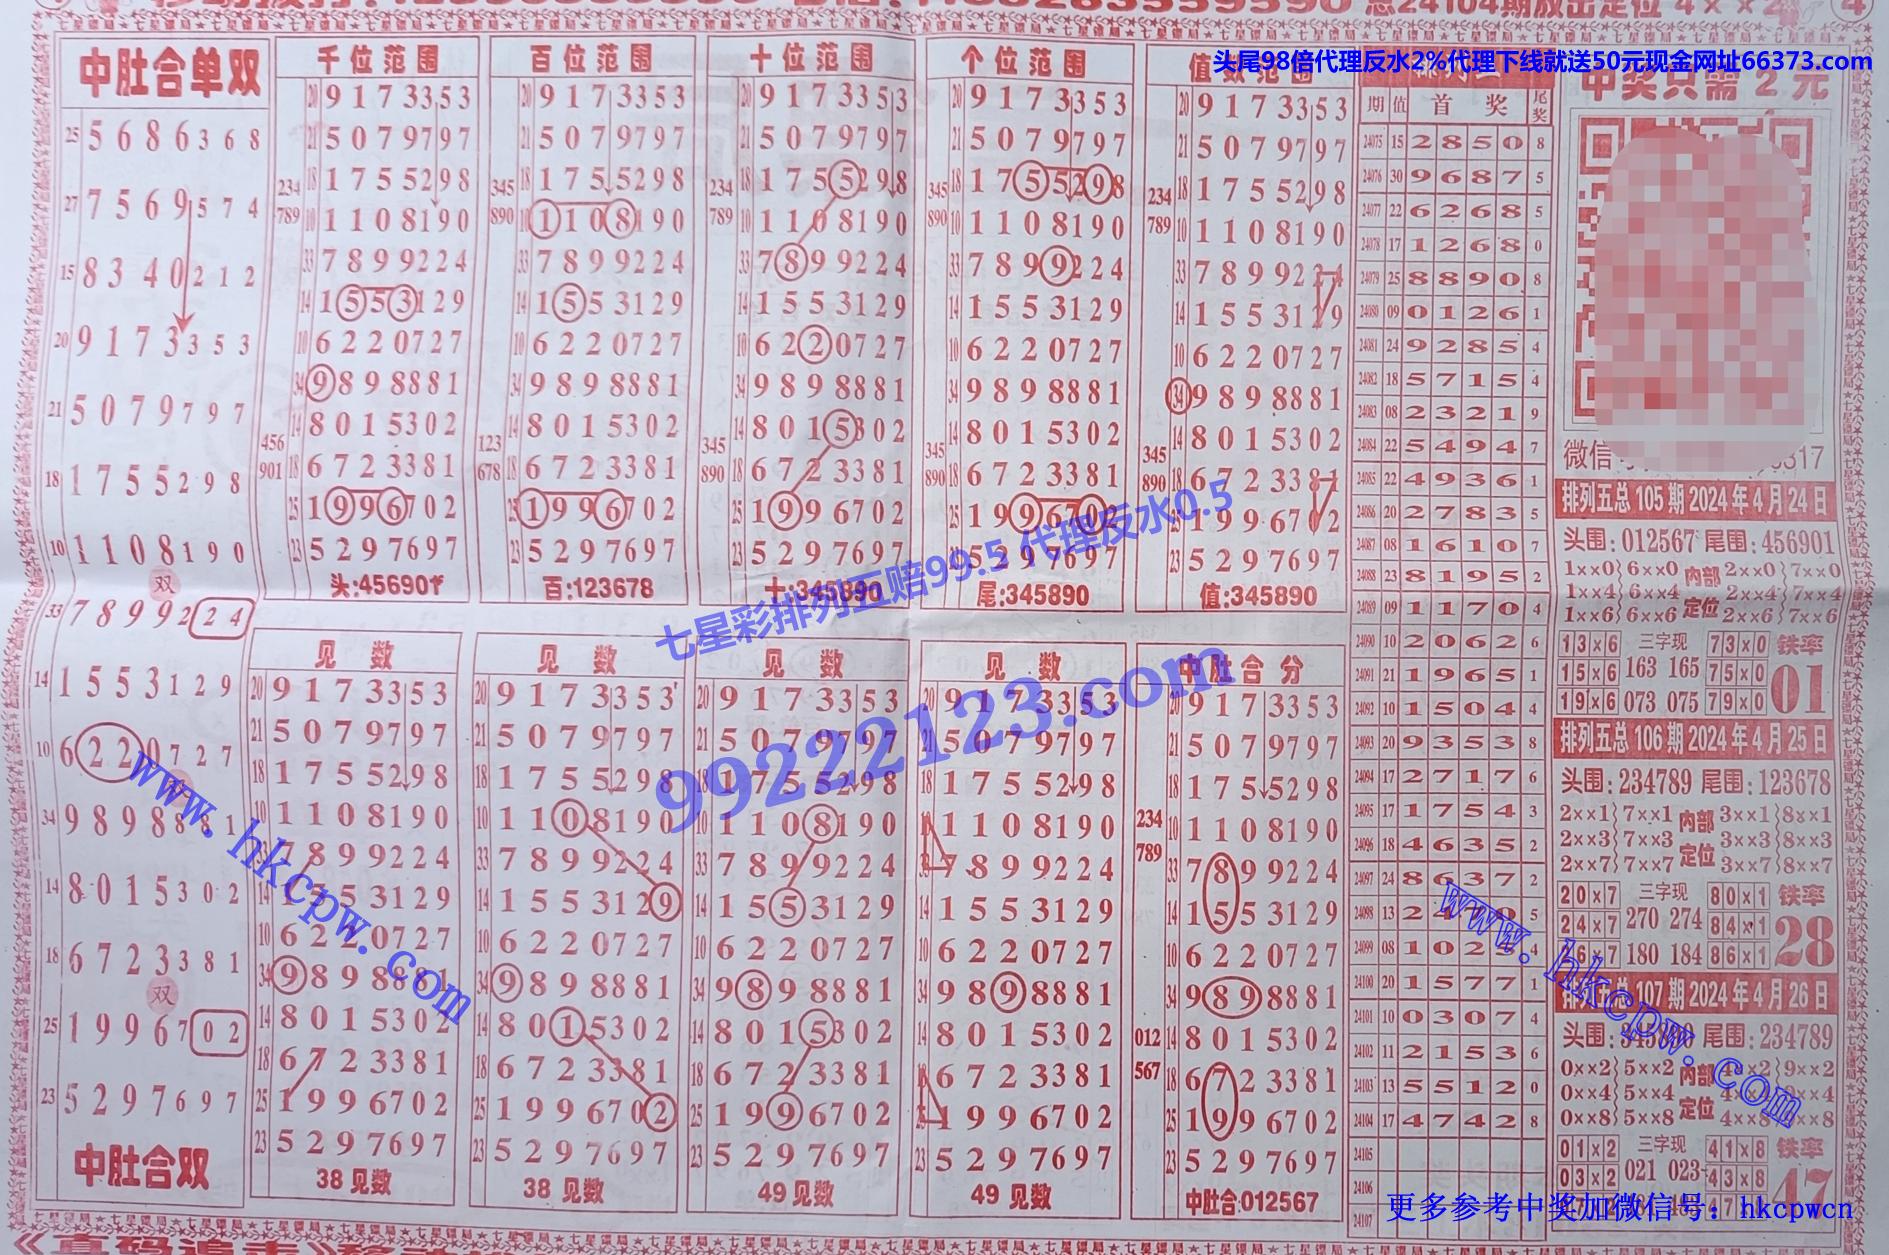 头尾98倍代理反水2%代理下线就送50元现金网址66373.com
中奖只需2元
中肚合单双
25 5686368
27 7569574
15 8340212
20 9173353
21 5079797
18 1755298
10 1108190
双
33 7899224
14 1553129
10 6220727
34 9898881
14 8015302
18 6723381
双
25 1996702
23 5297697
中肚合双
千位范围
20 9173353
21 5079797
18 1755298
234
789
10 1108190
33 7899224
14 1553129
10 6220727
34 9898881
14 8015302
456
901
18 6723381
25 1996702
23 5297697
头:456901
百位范围
20 9173353
21 5079797
18 1755298
345
890
10 1108190
33 7899224
14 1553129
10 6220727
34 9898881
14 8015302
123
678
18 6723381
25 1996702
23 5297697
百:123678
十位范围
20 9173353
21 5079797
18 1755298
234
789
10 1108190
33 7899224
14 1553129
10 6220727
34 9898881
14 8015302
345
890
18 6723381
25 1996702
23 5297697
十:345890
个位范围
20 9173353
21 5079797
18 1755298
345
890
10 1108190
33 7899224
14 1553129
10 6220727
34 9898881
14 8015302
345
890
18 6723381
25 1996702
5297697
尾:345890
值数范围
20 9173353
21 5079797
18 1755298
234
789
10 1108190
33 7899224
14 1553129
10 6220727
34 9898881
14 8015302
345
890
18 6723381
25 1996702
23 5297697
值:345890
见数
20 9173353
21 5079797
18 1755298
10 1108190
33 7899224
14 1553129
10 6220727
34 9898881
14 8015302
18 6723381
25 1996702
23 5297697
38见数
见数
20 9173353
21 5079797
18 1755298
10 1108190
33 7899224
14 1553129
10 6220727
34 9898881
14 8015302
18 6723381
25 1996702
23 5297697
38见数
见数
20 9173353
21 5079797
18 1755298
10 1108190
33 7899224
14 1553129
10 6220727
34 9898881
14 8015302
18 6723381
25 1996702
23 5297697
49见数
见数
20 9173353
21 5079797
18 1755298
1108190
7899224
14 1553129
10 6220727
34 9898881
14 8015302
6723381
1996702
23 5297697
49见数
中肚合分
20 9173353
21 5079797
18 1755298
234
789
10 1108190
33 7899224
14 1553129
10 6220727
34 9898881
012
567
14 8015302
18 6723381
25 1996702
23 5297697
中肚合:012567
期 值 首奖 尾奖
24075 15 2850 8
24076 30 9687 5
24077 22 6268 5
24078 17 1268 0
24079 25 8890 8
24080 09 0126 1
24081 24 9285 4
24082 18 5715 4
24083 08 2321 9
24084 22 5494 7
24085 22 4936 1
24086 20 2783 5
24087 08 1610 7
24088 23 8195 2
24089 09 1170 4
24090 10 2062 6
24091 21 1965 1
24092 10 1504 4
24093 20 9353 8
24094 17 2717 6
24095 17 1754 3
24096 18 4635 2
24097 24 8637 2
24098 13 5
24099 08 102 4
24100 20 1577 1
24101 10 0307 4
24102 11 2153 6
24103 13 5512 0
24104 17 4742 8
24105
24106
24107
微信
排列五总105期2024年4月24日
头围:012567 尾围:456901
1××0 6××0 内部 2××0 7××0
1××4 6××4 2××4 7××4
1××6 6××6 定位 2××6 7××6
13×6 三字现 73×0 铁率
15×6 163 165 75×0 01
19×6 073 075 79×0
排列五总106期2024年4月25日
头围:234789 尾围:123678
2××1 7××1 内部 3××1 8××1
2××3 7××3 3××3 8××3
2××7 7××7 定位 3××7 8××7
20×7 三字现 80×1 铁率
24×7 270 274 84×1 28
26×7 180 184 86×1
排列五总107期2024年4月26日
尾围:234789
0××2 5××2 内部 4××2 9××2
0××4 5××4
0××8 5××8 定位 4××8
01×2 三字现 41×8 铁率
03×2 021 023 43×8 47
七星彩排列五赔99.5 代理反水0.5
99222123.com
www.hkcpw.com
www.hkcpw.com
更多参考中奖加微信号：hkcpwcn